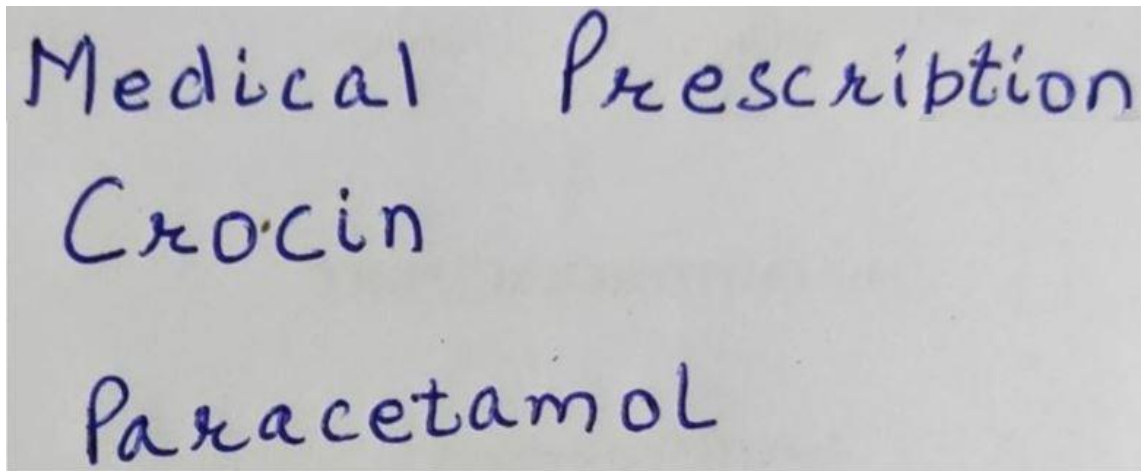 Medical Prescribtion
Crocin
Paracetamol